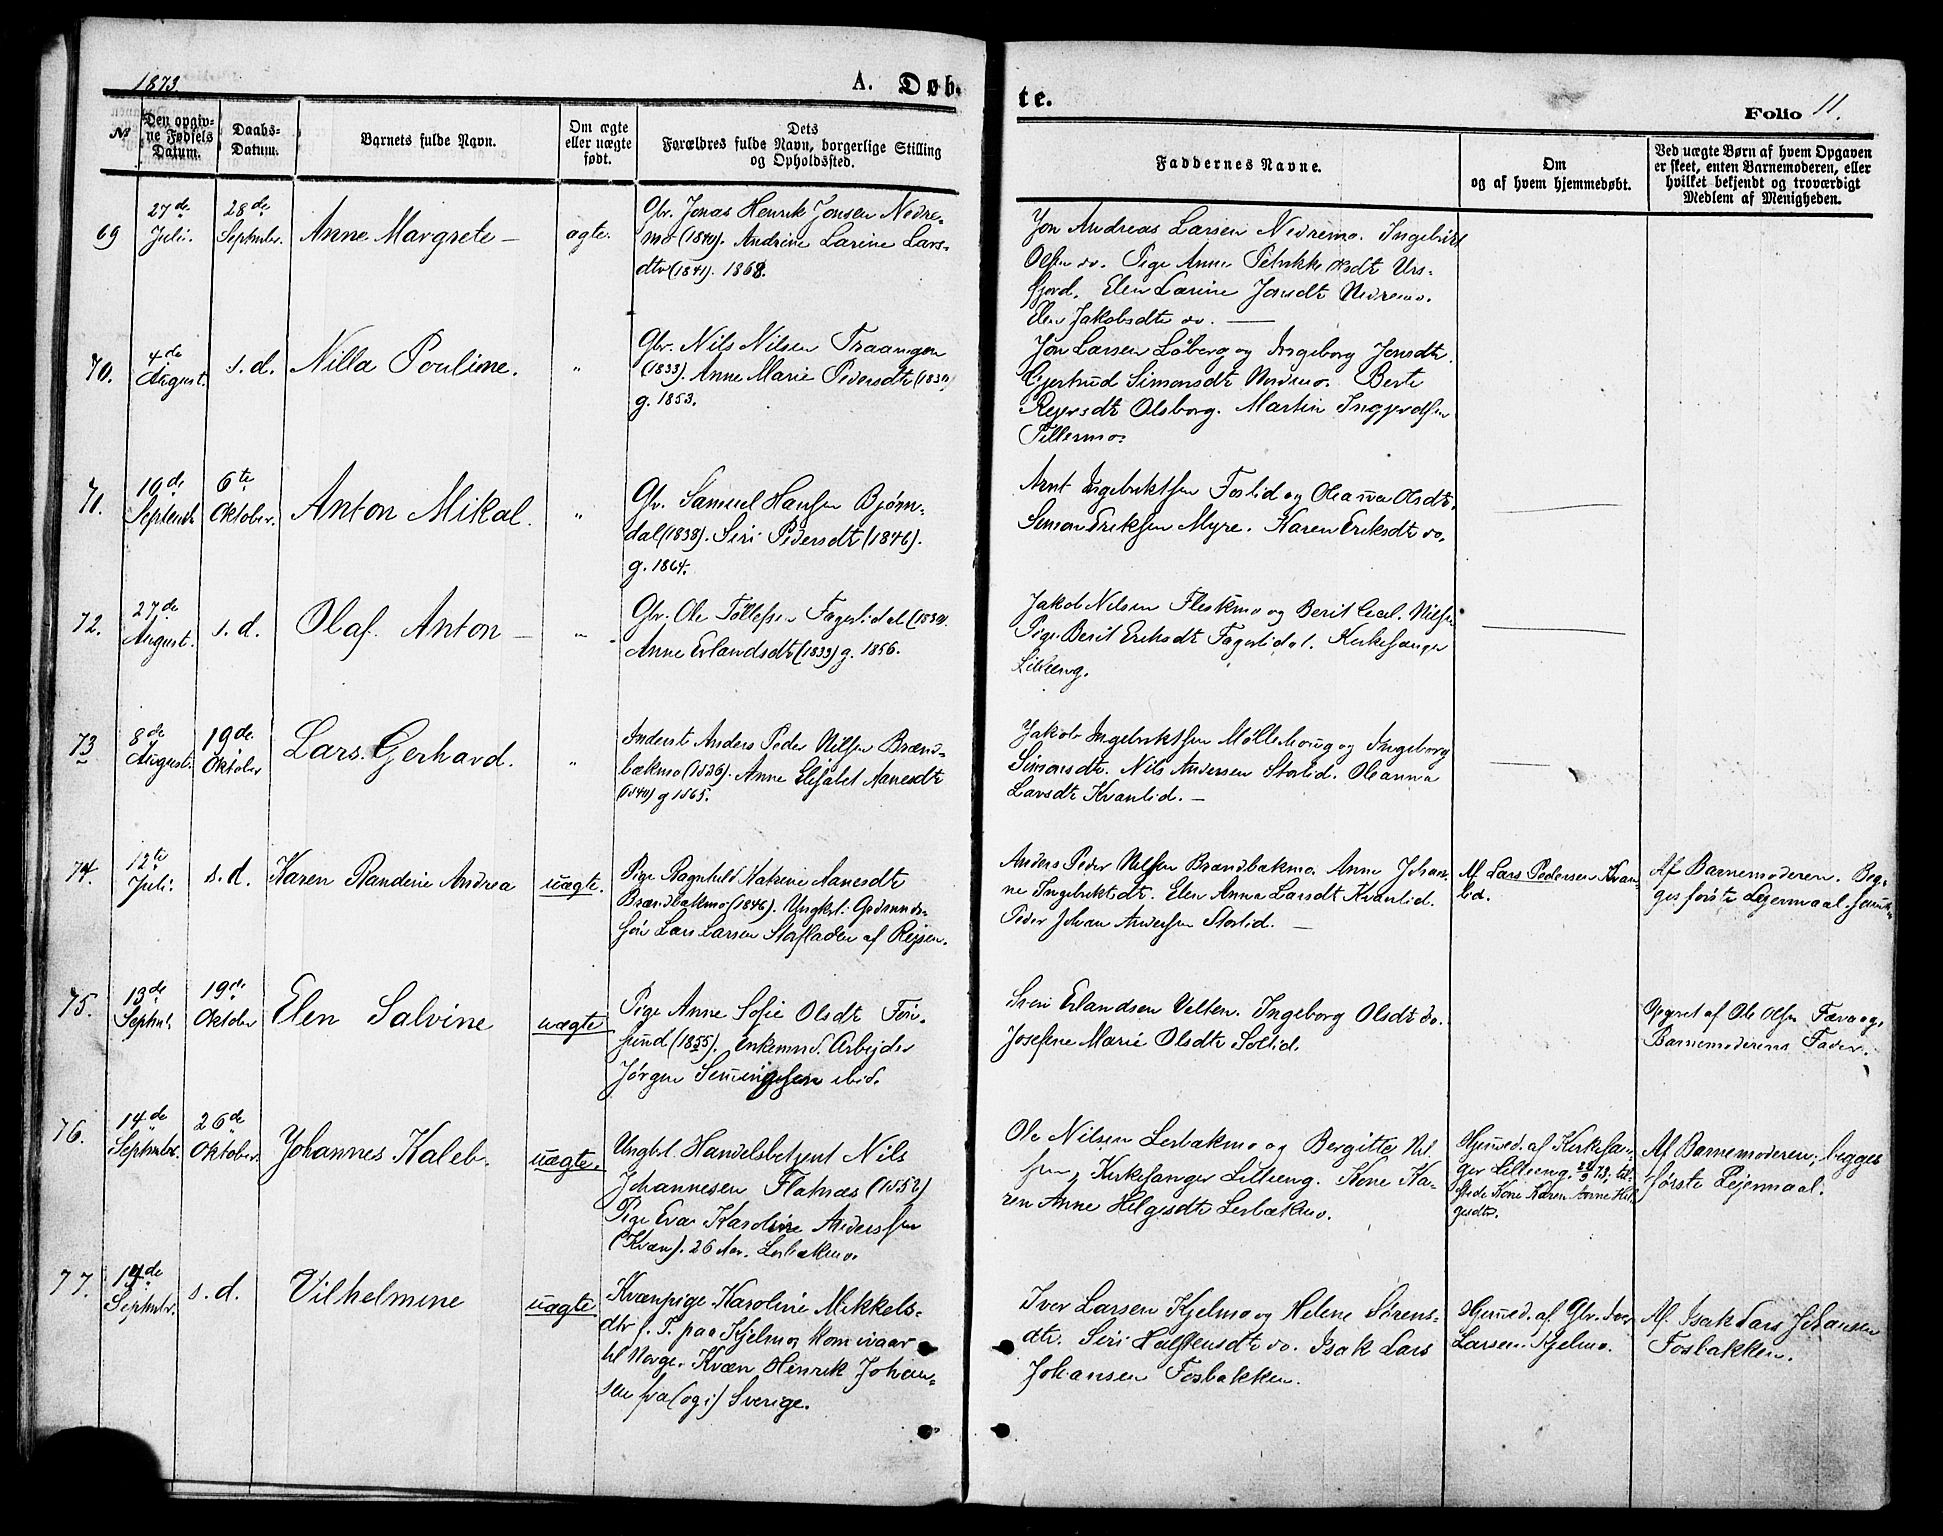 1873.
A. Døb-
te.
Folio 11.
№
Den opgiv-
ne Fødsels
Datum.
Daabs-
Datum.
Barnets fulde Navn.
Om ægte
eller uægte
født.
Dets
Forældres fulde Navn, borgerlige Stilling
og Opholdssted.
Faddernes Navne.
Om
og af hvem hjemmedøbt.
Ved uægte Børn af hvem Opgaven
er skeet, enten Barnemoderen, eller
hvilket bekjendt og troværdigt
Medlem af Menigheden.
69
27de
Juli.
28de
Septmbr.
Anne Margrete —
ægte.
Gbr. Jonas Henrik Jonsen Nedre-
mo (1840). Andrine Larine Lars-
dtr (1841). 1868.
Jon Andreas Larsen Nedremo. Ingebrigt
Olsen do. Pige Anne Petrikke Olsdtr
fjord. Elen Larine Jonsdtr Nedremo.
Elen Jakobsdtr do. —
70.
4de
August.
s. d.
Nilla Pouline.
„
Gbr. Nils Nilsen Traangen
(1833). Anne Marie Pedersdtr
g. 1853.
Jon Larsen Løberg og Ingeborg Jonsdtr.
Gjertrud Simonsdtr Berte
Olsborg. Martin
71.
10de
Septmbr
6te
Oktober.
Anton Mikal.
„
Gbr. Samuel Hansen Bjørn-
dal (1838). Siri Pedersdtr (1846).
g. 1864.
Arnt Ingebriktsen Foslid og Oleanna Olsdtr.
Simon Eriksen Myre. Karen Eriksdtr do.
72.
27de
August.
s. d.
Olaf Anton —
„
Gbr. Ole Tollefsen Fagerlidal
Anne Erlandsdtr (1833) g. 1856.
Jakob Nilsen Fleskmo og Berit Nilsen
Pige Berit Eriksdtr Fagerlidal. Kirkesanger
Lillieng.
73
8de
August.
19de
Oktober
Lars Gerhard.
„
Inderst Anders Peder Nilsen Brænd-
bækmo (1836). Anne Elisabet Aanesdtr
(1840) g 1865.
Jakob Ingebriktsen Møllehoug og Ingeborg
Simonsdtr. Nils Andersen Storlid. Oleanna
Larsdtr Kvanlid. —
74.
12te
Juli.
s. d.
Karen Randine Andrea
uægte.
Pige Ragnhild Katrine Aanesdtr
Brændbækmo (1846). Ungkrl. Gaardmands-
søn Lars Larsen Storfladen af Rejsen.
Anders Peder Nilsen Brændbækmo. Anne Johan-
ne Ingebriktsdtr. Elen Anna Larsdtr Kvanlid.
Peder Johan Andersen Storlid. —
Af Lars Pedersen Kvan-
lid.
Af Barnemoderen. Beg-
ges første Lejermaal.
75.
13de
Septmbr
19de
Oktober
Elen Salvine
uægte
Pige Anne Sofie Olsdtr Fin-
sund (1855). Enkemnd. Arbejder
Jørgen ibid.
Erlandsen Velten. Ingeborg Olsdtr do.
Josefine Marie Olsdtr Solid.
Opgivet af Ole Olsen
Barnemoderens Fader.
76.
14de
Septmbr.
26de
Oktober.
Johannes Kaleb.
uægte.
Ungkrl. Handelsbetjent Nils
Johannesen Flaknæs (1852)
Pige Eva Karoline Anderssen
(Kvæn). 26 Aar. Lerbækmo.
Ole Nilsen Lerbækmo og Bergitte Nil-
sen, Kirkesanger Lillieng. Kone Ka-
ren Anne Helgesdtr Lerbækmo.
Hjemmed. af Kirkesan-
ger Lillieng
stede Kone Karen Anne Hel-
gesdtr.
Af Barnemoderen; begges
første Lejermaal.
77.
14de
Septmbr.
s. d.
Vilhelmine
uægte
Kvænpige Karoline Mikkels-
dtr f. T. paa Kjelmo, kom ivaar
til Norge. Kvæn Henrik Johan-
sen fra (og i) Sverige.
Iver Larsen Kjelmo og Helene Sørens-
dtr. Siri Halstensdtr do. Isak Lars
Johansen Fosbakken.
Hjemmed. af Gbr. Iver
Larsen Kjelmo.
Af Isak Lars Johansen
Fosbakken.